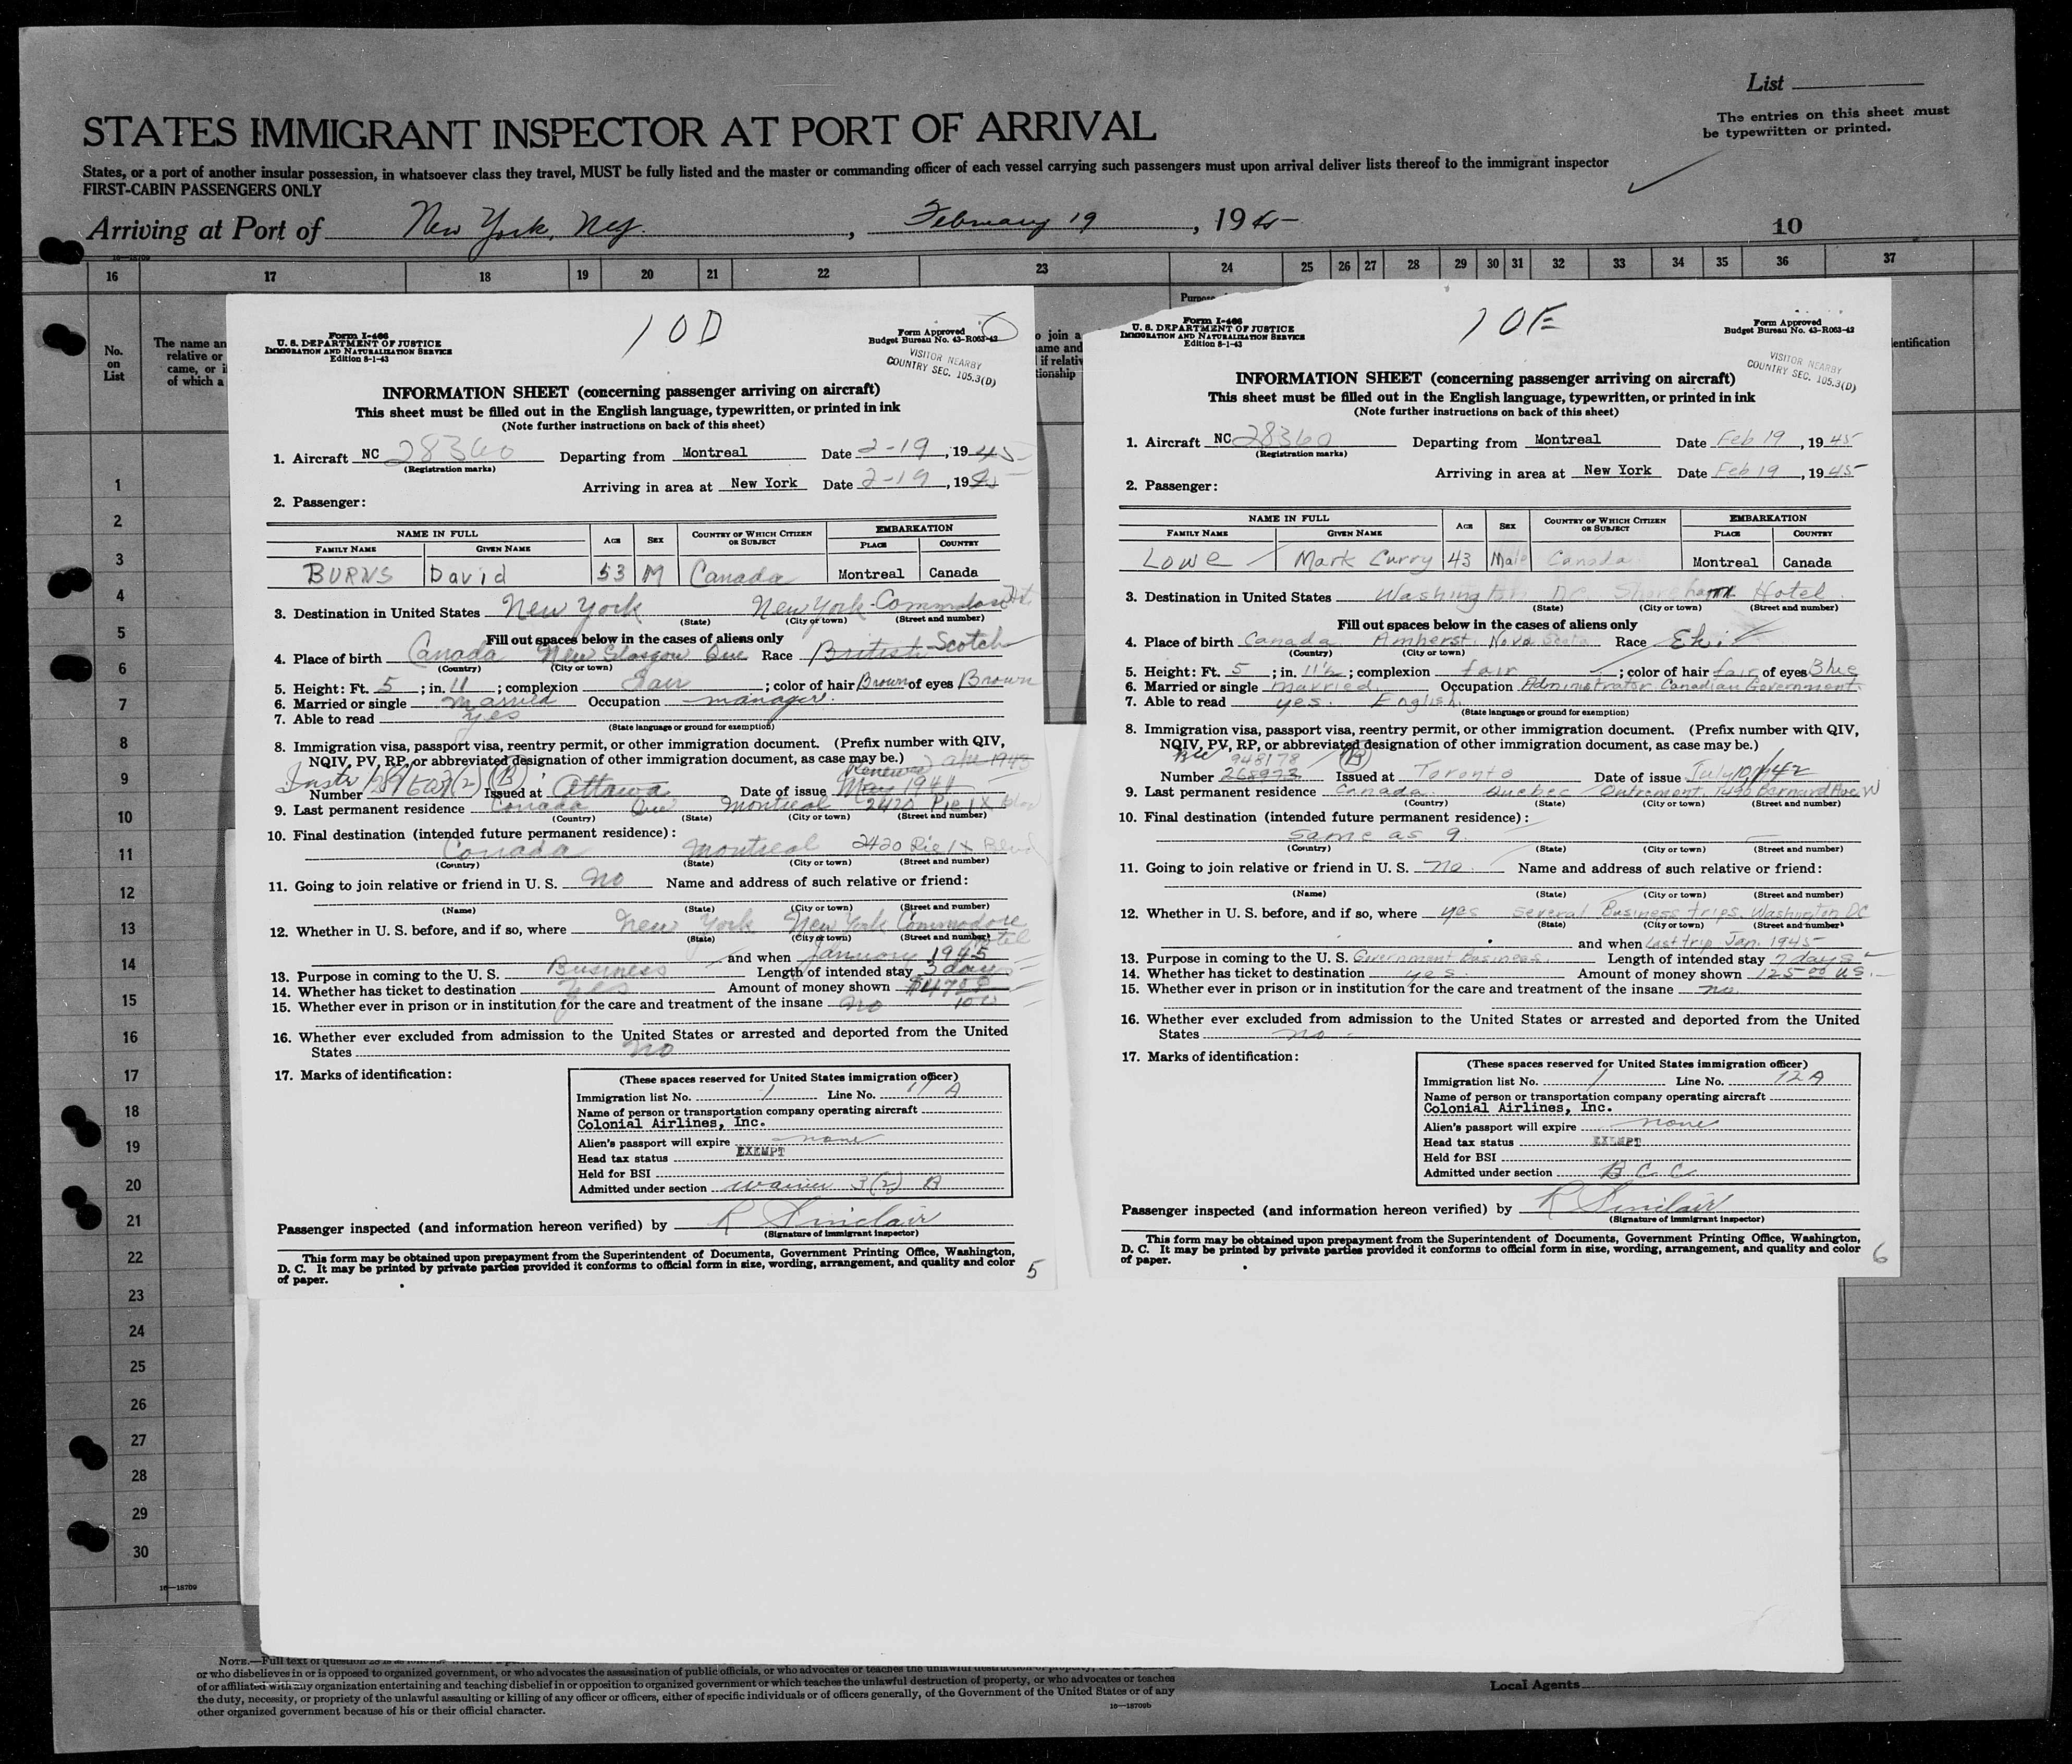 List
The entries on this sheet must
be typewritten or printed.
STATES IMMIGRANT INSPECTOR AT PORT OF ARRIVAL
States, or a port of another insular possession, in whatsoever class they travel, MUST be fully listed and the master or commanding officer of each vessel carrying such passengers must upon arrival deliver lists thereof to the immigrant inspector
FIRST-CABIN PASSENGERS ONLY
Arriving at Port of New York, NY. , February 19 , 1945
10
16—18709
16 17 18 19 20 21 22 23 24 25 26 27 28 29 30 31 32 33 34 35 36 37
No.
on
List
The name an
relative or
came, or i
of which a
o join a
ame and
if relativ
tionship
Purpose
entification
1
2
3
4
5
6
7
8
9
10
11
12
13
14
15
16
17
18
19
20
21
22
23
24
25
26
27
28
29
30
16—18709
10D
Form I-466
U. S. DEPARTMENT OF JUSTICE
IMMIGRATION AND NATURALIZATION SERVICE
Edition 8-1-43
Form Approved
Budget Bureau No. 43-R063-42
VISITOR NEARBY
COUNTRY SEC. 105.3(D)
INFORMATION SHEET (concerning passenger arriving on aircraft)
This sheet must be filled out in the English language, typewritten, or printed in ink
(Note further instructions on back of this sheet)
1. Aircraft NC 28360 Departing from Montreal Date 2-19 , 1945
(Registration marks)
Arriving in area at New York Date 2-19 , 1945
2. Passenger:
NAME IN FULL AGE SEX COUNTRY OF WHICH CITIZEN OR SUBJECT EMBARKATION
FAMILY NAME GIVEN NAME PLACE COUNTRY
BURNS David 53 M Canada Montreal Canada
3. Destination in United States New York New York - Commodore Ht
(State) (City or town) (Street and number)
Fill out spaces below in the cases of aliens only
4. Place of birth Canada New Glasgow Que Race British Scotch
(Country) (City or town)
5. Height: Ft. 5 ; in. 11 ; complexion Fair ; color of hair Brown of eyes Brown
6. Married or single married Occupation manager.
7. Able to read yes
(State language or ground for exemption)
8. Immigration visa, passport visa, reentry permit, or other immigration document. (Prefix number with QIV,
NQIV, PV, RP, or abbreviated designation of other immigration document, as case may be.)
Renewed
Number 3(2) (B) Issued at Ottawa Date of issue May 1941
9. Last permanent residence Canada Que Montreal 2420 Pie IX Blvd
(Country) (State) (City or town) (Street and number)
10. Final destination (intended future permanent residence):
Canada Montreal 2420 Pie IX Blvd
(Country) (State) (City or town) (Street and number)
11. Going to join relative or friend in U. S. No Name and address of such relative or friend:
(Name) (State) (City or town) (Street and number)
12. Whether in U. S. before, and if so, where New York New York Commodore Hotel
(State) (City or town) (Street and number)
and when January 1945
13. Purpose in coming to the U. S. Business Length of intended stay 3 days
14. Whether has ticket to destination Yes Amount of money shown
15. Whether ever in prison or in institution for the care and treatment of the insane No
16. Whether ever excluded from admission to the United States or arrested and deported from the United
States no
17. Marks of identification:
(These spaces reserved for United States immigration officer)
Immigration list No. 1 Line No. 11 A
Name of person or transportation company operating aircraft
Colonial Airlines, Inc.
Alien's passport will expire none
Head tax status EXEMPT
Held for BSI
Admitted under section waiver 3(2) B
Passenger inspected (and information hereon verified) by R Sinclair
(Signature of immigrant inspector)
This form may be obtained upon prepayment from the Superintendent of Documents, Government Printing Office, Washington,
D. C. It may be printed by private parties provided it conforms to official form in size, wording, arrangement, and quality and color
of paper.
5
10E
Form I-466
U. S. DEPARTMENT OF JUSTICE
IMMIGRATION AND NATURALIZATION SERVICE
Edition 8-1-43
Form Approved
Budget Bureau No. 43-R063-42
VISITOR NEARBY
COUNTRY SEC. 105.3(D)
INFORMATION SHEET (concerning passenger arriving on aircraft)
This sheet must be filled out in the English language, typewritten, or printed in ink
(Note further instructions on back of this sheet)
1. Aircraft NC 28360 Departing from Montreal Date Feb 19 , 1945
(Registration marks)
Arriving in area at New York Date Feb 19 , 1945
2. Passenger:
NAME IN FULL AGE SEX COUNTRY OF WHICH CITIZEN OR SUBJECT EMBARKATION
FAMILY NAME GIVEN NAME PLACE COUNTRY
Lowe Mark Curry 43 Male Canada Montreal Canada
3. Destination in United States Washington DC. Shoreham Hotel
(State) (City or town) (Street and number)
Fill out spaces below in the cases of aliens only
4. Place of birth Canada Amherst Nova Scotia Race
(Country) (City or town)
5. Height: Ft. 5 ; in. 11½ ; complexion fair ; color of hair fair of eyes Blue
6. Married or single married Occupation Administrator Canadian Government
7. Able to read yes. English.
(State language or ground for exemption)
8. Immigration visa, passport visa, reentry permit, or other immigration document. (Prefix number with QIV,
NQIV, PV, RP, or abbreviated designation of other immigration document, as case may be.)
948178 (B)
Number 268973 Issued at Toronto Date of issue July 10/42
9. Last permanent residence Canada Quebec Outremont 1490 Bernard Ave W
(Country) (State) (City or town) (Street and number)
10. Final destination (intended future permanent residence):
same as 9.
(Country) (State) (City or town) (Street and number)
11. Going to join relative or friend in U. S. no Name and address of such relative or friend:
(Name) (State) (City or town) (Street and number)
12. Whether in U. S. before, and if so, where yes several Business trips. Washington DC
(State) (City or town) (Street and number)
and when Last trip Jan. 1945
13. Purpose in coming to the U. S. Government Business. Length of intended stay 2 days
14. Whether has ticket to destination yes. Amount of money shown 125.00 U.S.
15. Whether ever in prison or in institution for the care and treatment of the insane no
16. Whether ever excluded from admission to the United States or arrested and deported from the United
States no
17. Marks of identification:
(These spaces reserved for United States immigration officer)
Immigration list No. 1 Line No. 12 A
Name of person or transportation company operating aircraft
Colonial Airlines, Inc.
Alien's passport will expire none
Head tax status EXEMPT
Held for BSI
Admitted under section B C C
Passenger inspected (and information hereon verified) by R Sinclair
(Signature of immigrant inspector)
This form may be obtained upon prepayment from the Superintendent of Documents, Government Printing Office, Washington,
D. C. It may be printed by private parties provided it conforms to official form in size, wording, arrangement, and quality and color
of paper.
6
NOTE.—Full text of question
or who disbelieves in or is opposed to organized government, or who advocates the assassination of public officials, or who advocates or teaches the unlawful destruction of property,
of or affiliated with any organization entertaining and teaching disbelief in or opposition to organized government or which teaches the unlawful destruction of property, or who advocates or teaches
the duty, necessity, or propriety of the unlawful assaulting or killing of any officer or officers, either of specific individuals or of officers generally, of the Government of the United States or of any
other organized government because of his or their official character.
16—18709b
Local Agents